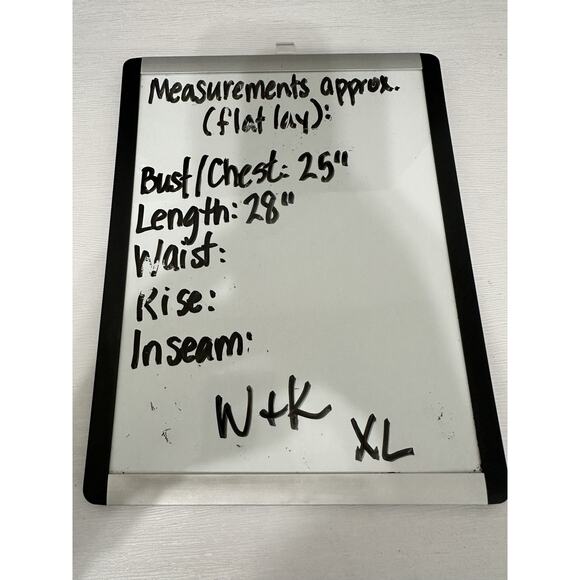 Measurements approx.
(flat lay):
Bust/Chest: 25"
Length: 28"
Waist:
Rise:
Inseam:
W+K
XL